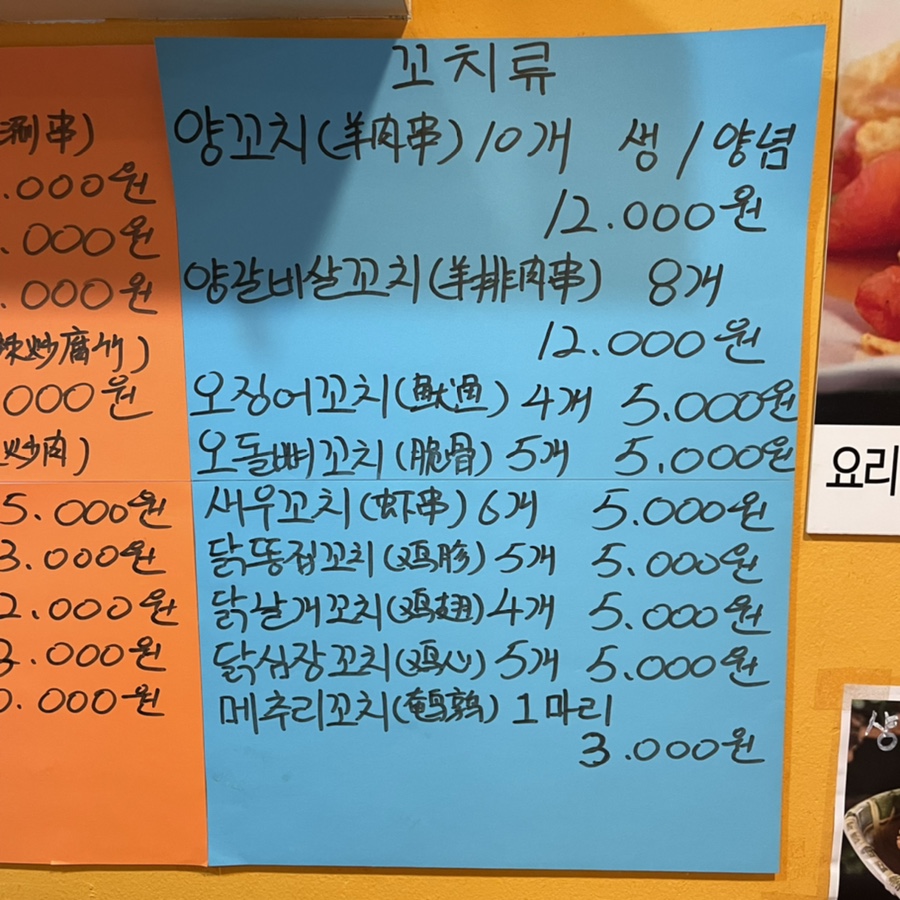 꼬치류
양꼬치(羊肉串) 10개 생 / 양념
12.000원
양갈비살꼬치(羊排肉串) 8개
12.000원
오징어꼬치(鱿鱼) 4개 5.000원
오돌뼈꼬치(脆骨) 5개 5.000원
새우꼬치(虾串) 6개 5.000원
닭똥집꼬치(鸡胗) 5개 5.000원
닭날개꼬치(鸡翅) 4개 5.000원
닭심장꼬치(鸡心) 5개 5.000원
메추리꼬치(鹌鹑) 1마리
3.000원
涮串)
.000원
.000원
.000원
辣炒腐竹)
000원
炒肉)
5.000원
3.000원
2.000원
3.000원
0.000원
요리
생